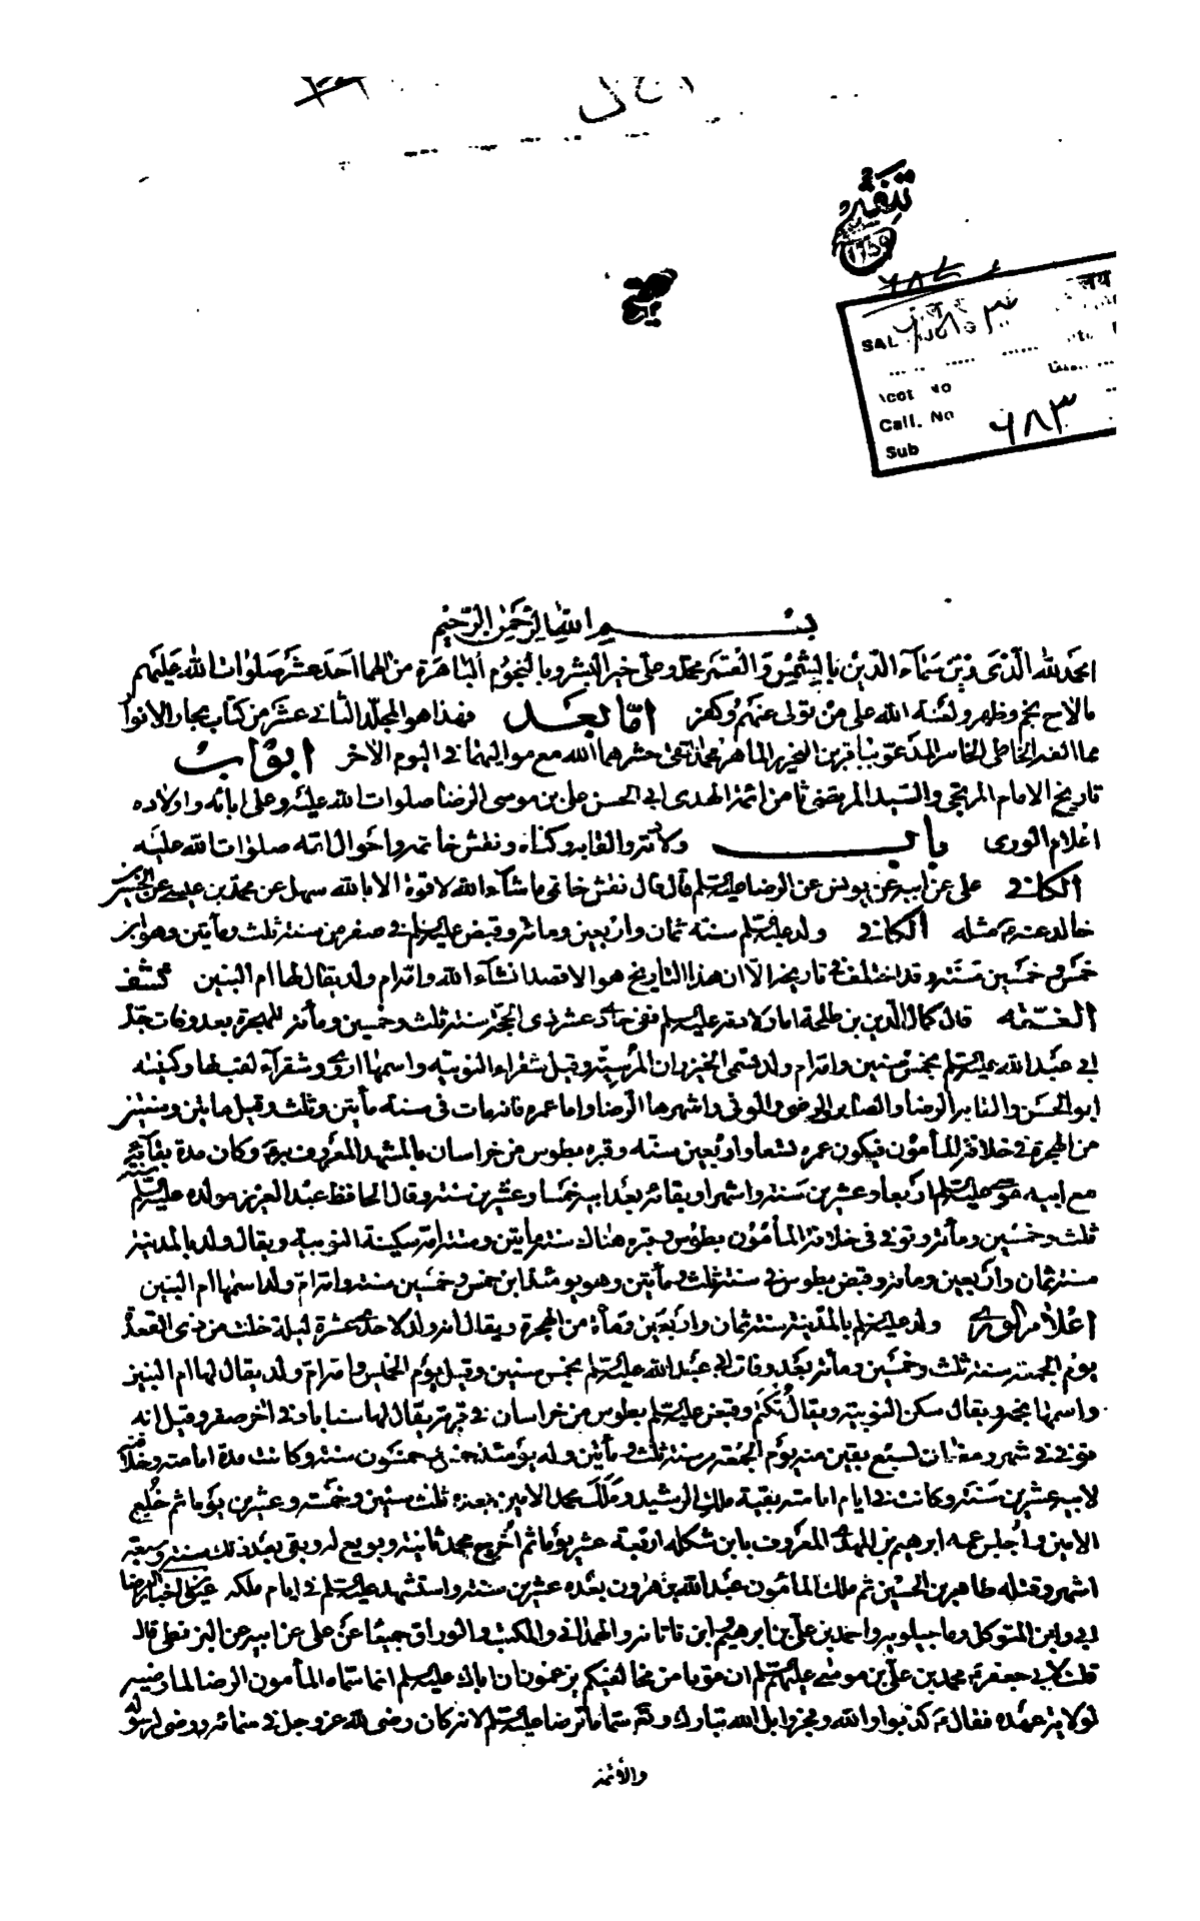 SAL
Acot No
Call. No ٦٨٣
Sub
بسم الله الرحمن الرحيم
الحمد لله الذى زين سماء الدين بالشمس والقمر محمد وعلى خير البشر وبالنجوم الباهرة من الهما احد عشر صلوات الله عليهم
مالاح نجم وظهر ولعنة الله على من تولى عنهم وكفر اما بعد فهذا هو المجلد الثانى عشر من كتاب بحار الانوار
مما الفه الخاطى الخاسر المدعو بباقر بن النحرير الماهر محمد تقى حشرهما الله مع مواليهما فى اليوم الاخر ابواب
تاريخ الامام المرتجى والسيد المرتضى ثامن ائمة الهدى ابى الحسن على بن موسى الرضا صلوات الله عليه وعلى ابائه واولاده
اعلام الورى باب ولادته والقابه وكناه ونقش خاتمه واحوال امه صلوات الله عليه
الكافى على عن ابيه عن يونس عن الرضا عليه السلم قال قال نقش خاتمى ماشاء الله لا قوة الا بالله سهل عن محمد بن عيسى عن الحسين بن
خالد عنه مثله الكافى ولد عليه السلم سنة ثمان واربعين ومائة وقبض عليه السلم فى صفر من سنة ثلث ومأتين وهو ابن
خمس وخمسين سنة وقد اختلف فى تاريخه الا ان هذا التاريخ هو الاقصد انشاء الله وامه ام ولد يقال لها ام البنين كشف
الغمة قال كمال الدين بن طلحة اما ولادته عليه السلم ففى حادى عشر ذى الحجة سنة ثلث وخمسين ومأة للهجرة بعد وفات جده
ابى عبد الله عليه السلم بخمس سنين وامه ام ولد تسمى الخيزران المرسية وقيل شقراء النوبية واسمها اروى وشقراء لقب لها وكنيته
ابو الحسن والقابه الرضا والصابر والرضى والوفى واشهرها الرضا واما عمره فانه مات فى سنة مأتين وثلث وقيل مأتين وسنتين
من الهجرة فى خلافة المأمون فيكون عمره تسعا واربعين سنة وقبره بطوس من خراسان بالمشهد المعروف به وكان مدة بقائه
مع ابيه موسى عليه السلم اربعا وعشرين سنة واشهرا وبقائه بعد ابيه خمسا وعشرين سنة وقال الحافظ عبد العزيز مولده عليه السلم سنة
ثلث وخمسين ومأة وتوفى فى خلافة المأمون بطوس وقبره هناك سنة مأتين وستة امه سكينة النوبية ويقال ولد بالمدينة
سنة ثمان واربعين ومأة وقبض بطوس فى سنة ثلث ومأتين وهو يومئذ ابن خمس وخمسين سنة وامه ام ولد اسمها ام البنين
اعلام الورى ولد عليه السلم بالمدينة سنة ثمان واربعين ومأة من الهجرة ويقال انه ولد لاحدى عشرة ليلة خلت من ذى القعدة
يوم الجمعة سنة ثلث وخمسين ومأة بعد وفات ابى عبد الله عليه السلم بخمس سنين وقيل يوم الخميس وامه ام ولد يقال لها ام البنين
واسمها نجمه ويقال سكن النوبية ويقال تكتم وقبض عليه السلم بطوس من خراسان فى قرية يقال لها سناباد فى اخر صفر وقيل انه
توفى فى شهر رمضان لسبع بقين منه يوم الجمعة من سنة ثلث ومأتين وله يومئذ خمس وخمسون سنة وكانت مدة امامته وخلافته
لابيه عشرين سنة وكانت فى ايام امامته بقية ملك الرشيد وملك محمد الامين بعده ثلث سنين وخمسة وعشرين يوما ثم خلع
الامين واجلس عمه ابرهيم بن المهدى المعروف بابن شكله اربعة عشر يوما ثم اخرج محمد ثانية وبويع له وبقى بعد ذلك سنة وسبعة
اشهر وقتله طاهر بن الحسين ثم ملك المامون عبد الله بن هرون بعده عشرين سنة واستشهد عليه السلم فى ايام ملكه عيون اخبار الرضا
ابى وابن المتوكل وماجيلويه واحمد بن على بن ابرهيم وابن ناتانه والهمدانى والمكتب والوراق جميعا عن على عن ابيه عن البزنطى قال
قلت لابى جعفر محمد بن على بن موسى عليهم السلم ان قوما من مخالفيكم يزعمون ان اباك عليه السلم انما سماه المأمون الرضا لما رضيه
لولاية عهده فقال كذبوا والله وفجروا بل الله تبارك وتعالى سماه بالرضا عليه السلم لانه كان رضى لله عز وجل فى سمائه ورضى لرسوله
والائمة